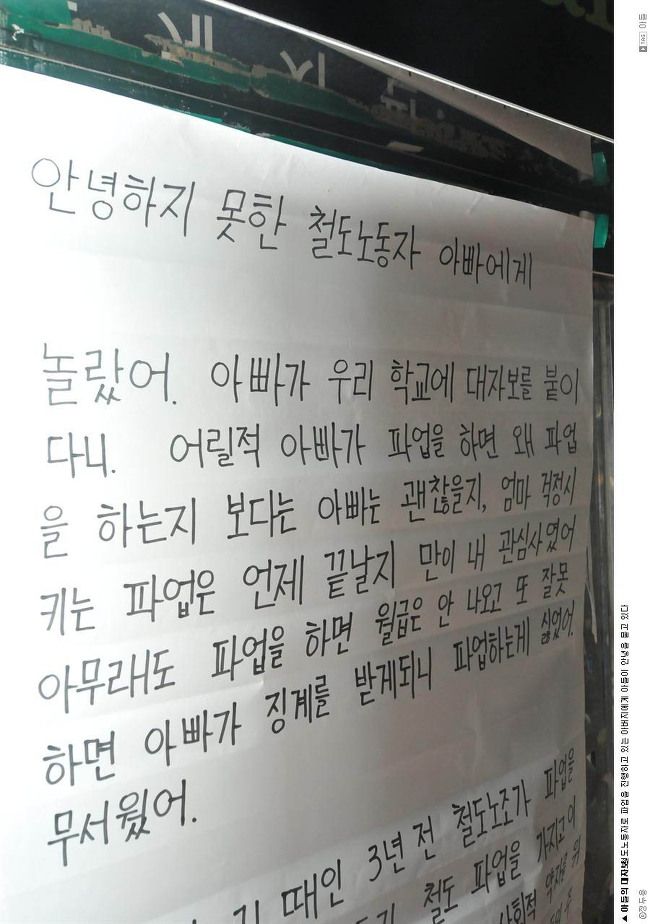 안녕하지 못한 철도노동자 아빠에게
놀랐어. 아빠가 우리 학교에 대자보를 붙이
다니. 어릴적 아빠가 파업을 하면 왜 파업
을 하는지 보다는 아빠는 괜찮을지, 엄마 걱정시
키는 파업은 언제 끝날지 만이 내 관심사였어
아무래도 파업을 하면 월급은 안 나오고 또 잘못
하면 아빠가 징계를 받게되니 파업하는게 싫었어.
무서웠어.
때인 3년 전 철도노조가 파업을
철도 파업을 가지고 이
사회적 약자를 위
▲ 아들의 대자보 철도노동자로 파업을 진행하고 있는 아버지에게 아들이 안녕을 묻고 있다
©정두용
TAG 아들